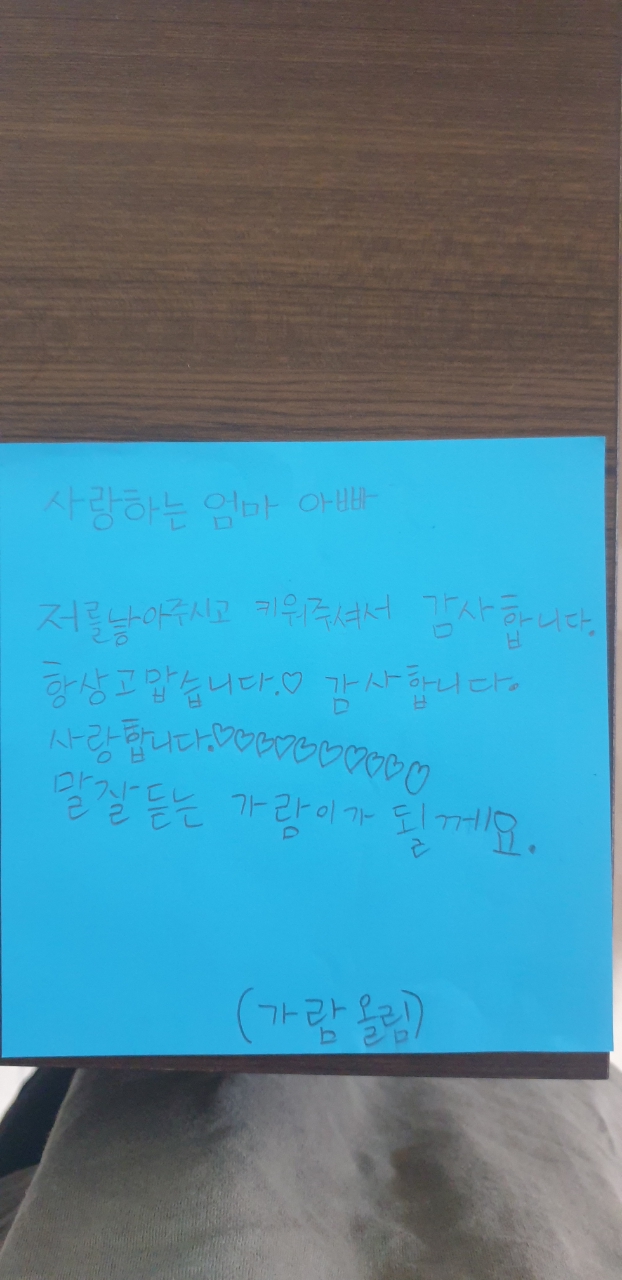 사랑하는 엄마 아빠
저를낳아주시고 키워주셔서 감사합니다.
항상고맙습니다.♡ 감사합니다.
사랑합니다.♡♡♡♡♡♡♡♡♡♡
말잘듣는 가람이가 될께요.
(가람올림)